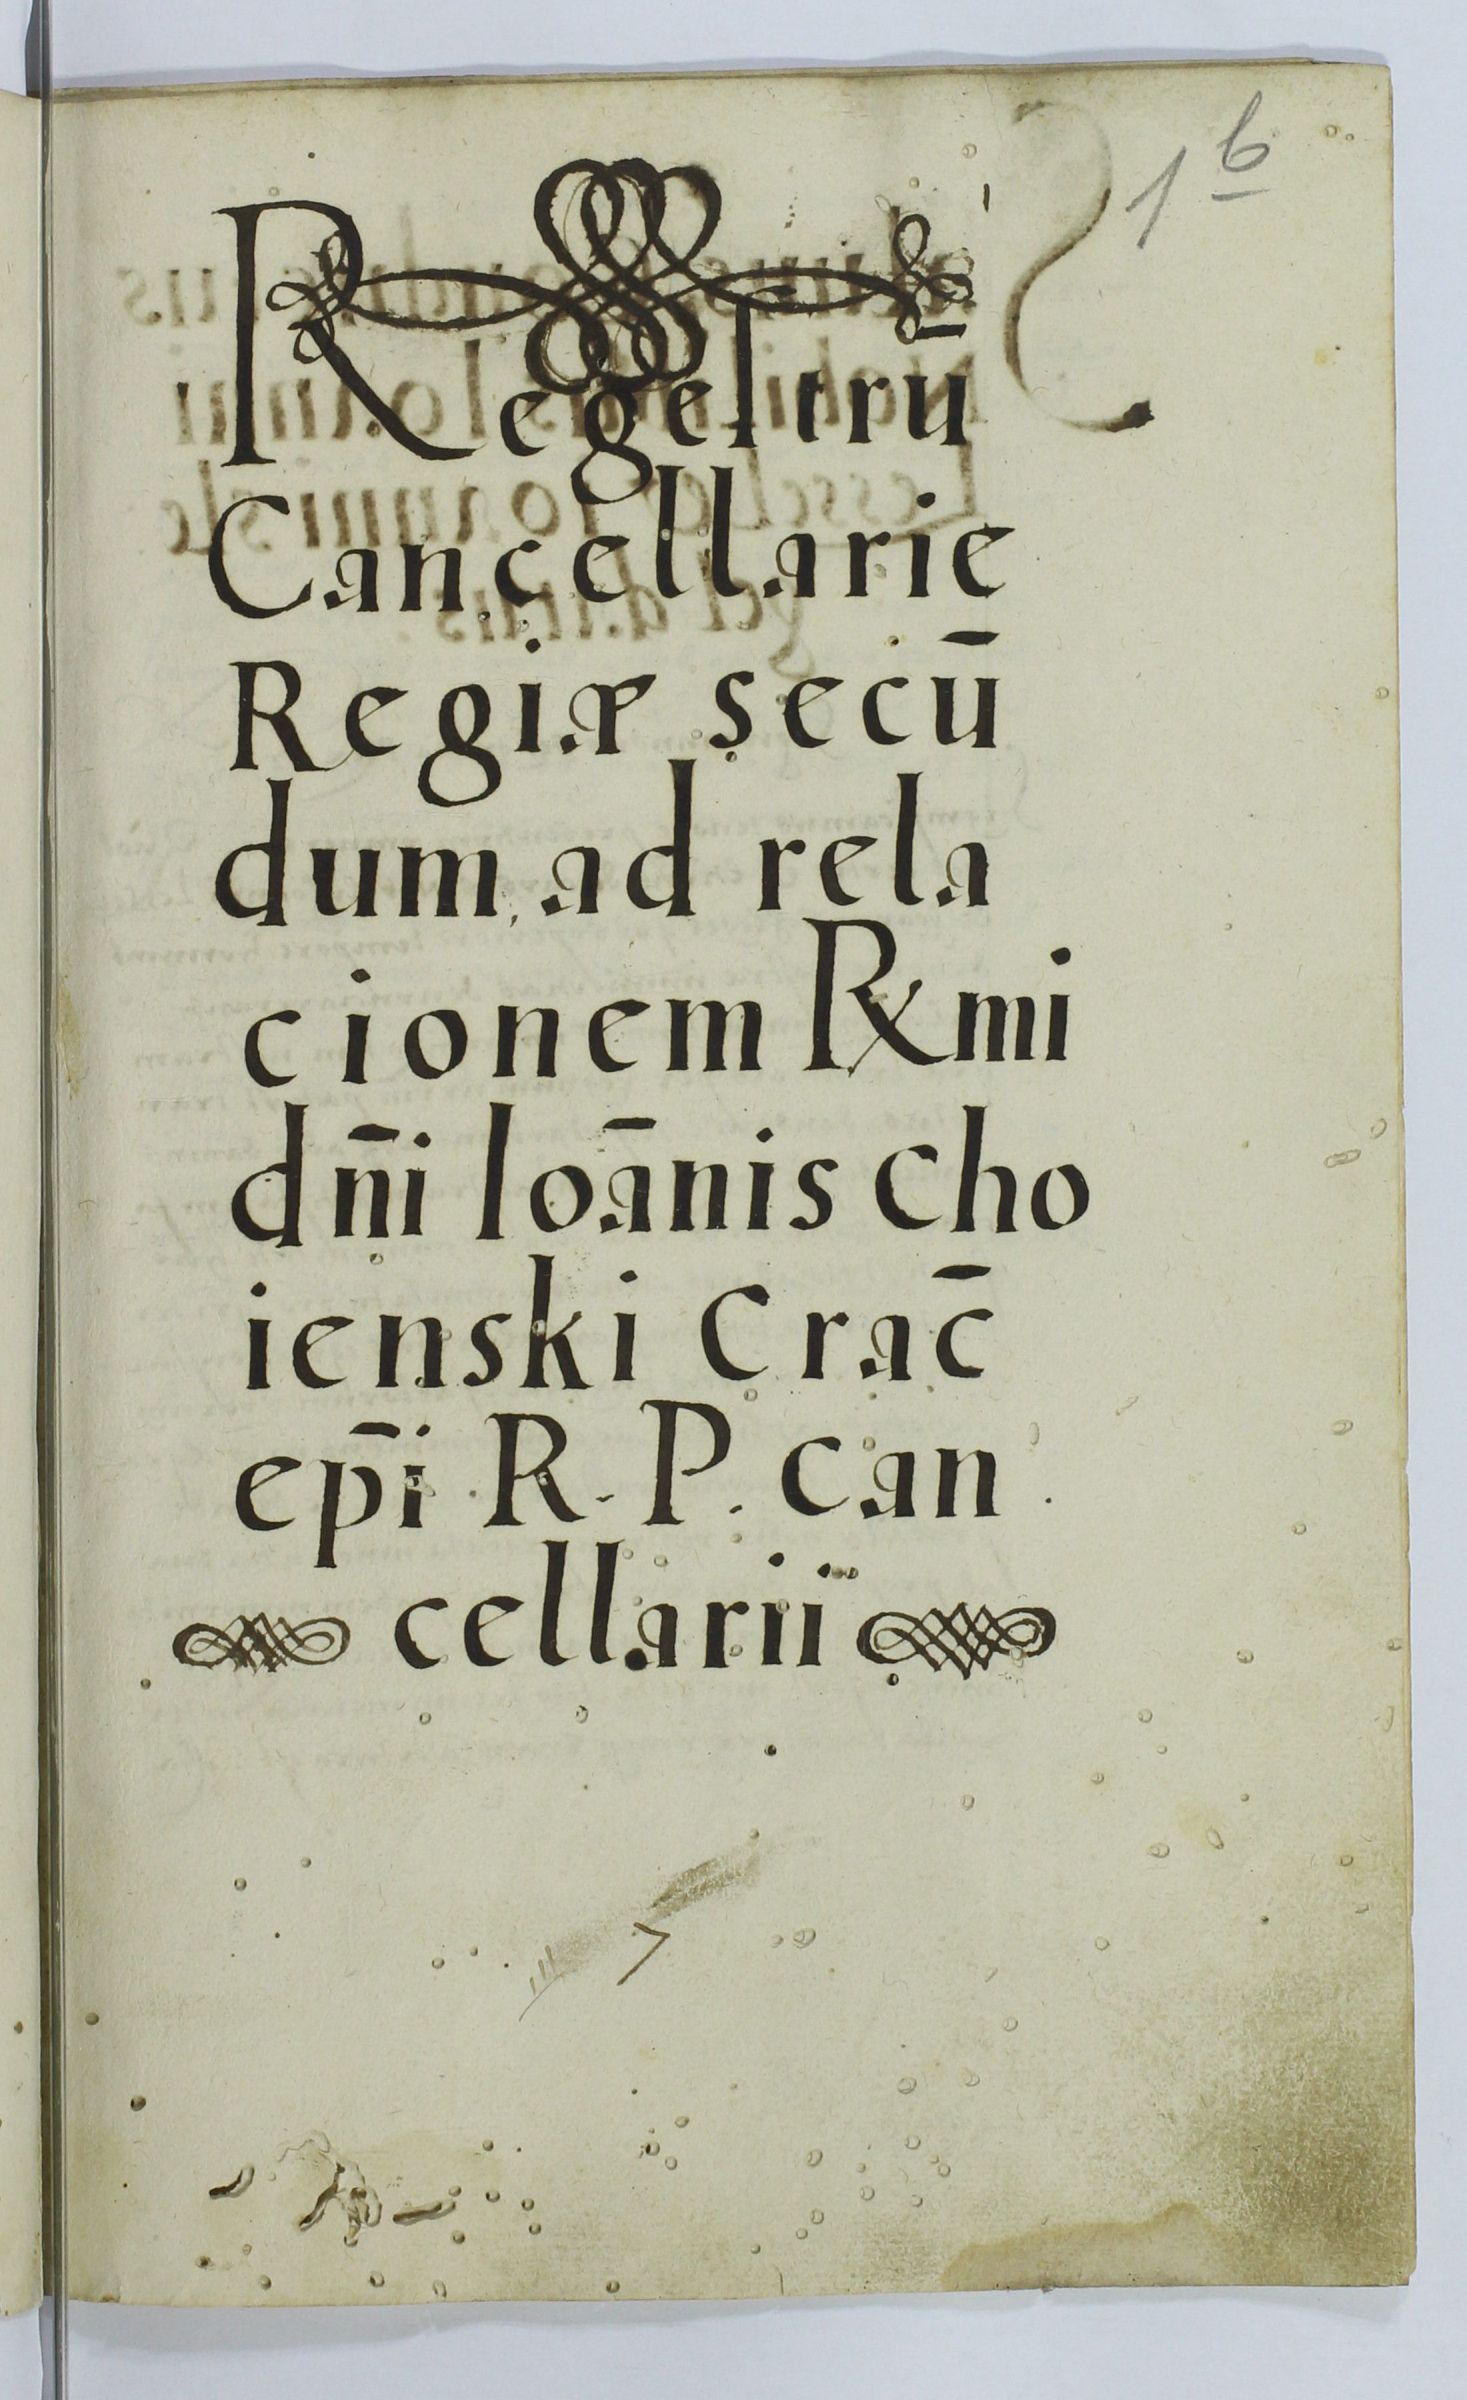 1b
Regeſtrū
Cancellarie
Regiæ secū
dum ad rela
cionem Rmi
dn̄i Ioānis Cho
ienski Crac̄
ep̄i R. P. Can
cellarii
7